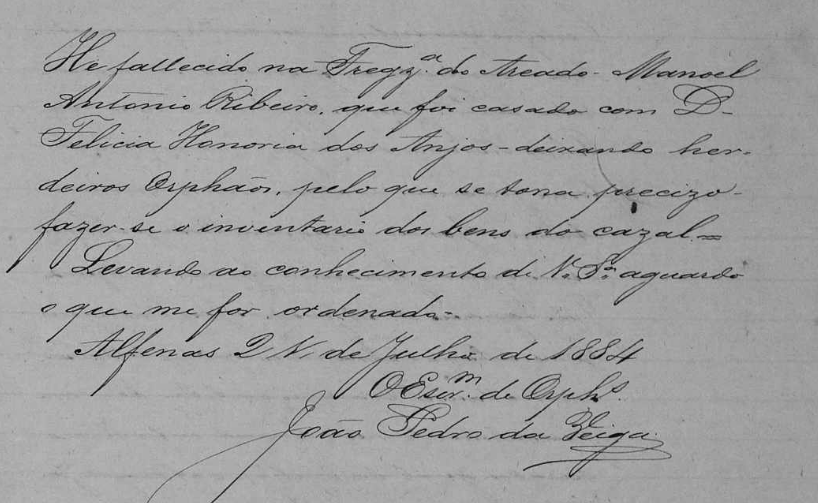 He fallecido na Fregz.ª do Areado - Manoel
Antonio Ribeiro, que foi casado com D.
Felicia Honoria dos Anjos - deixando her-
deiros Orphãos, pelo que se tona precizo
fazer-se o inventario dos bens do cazal =
Levando ao conhecimento de V.ª S.ª aguardo
o que me for ordenado -
Alfenas de Julho de 1884
O Escr.m de Orph.s
João Pedro da Veiga